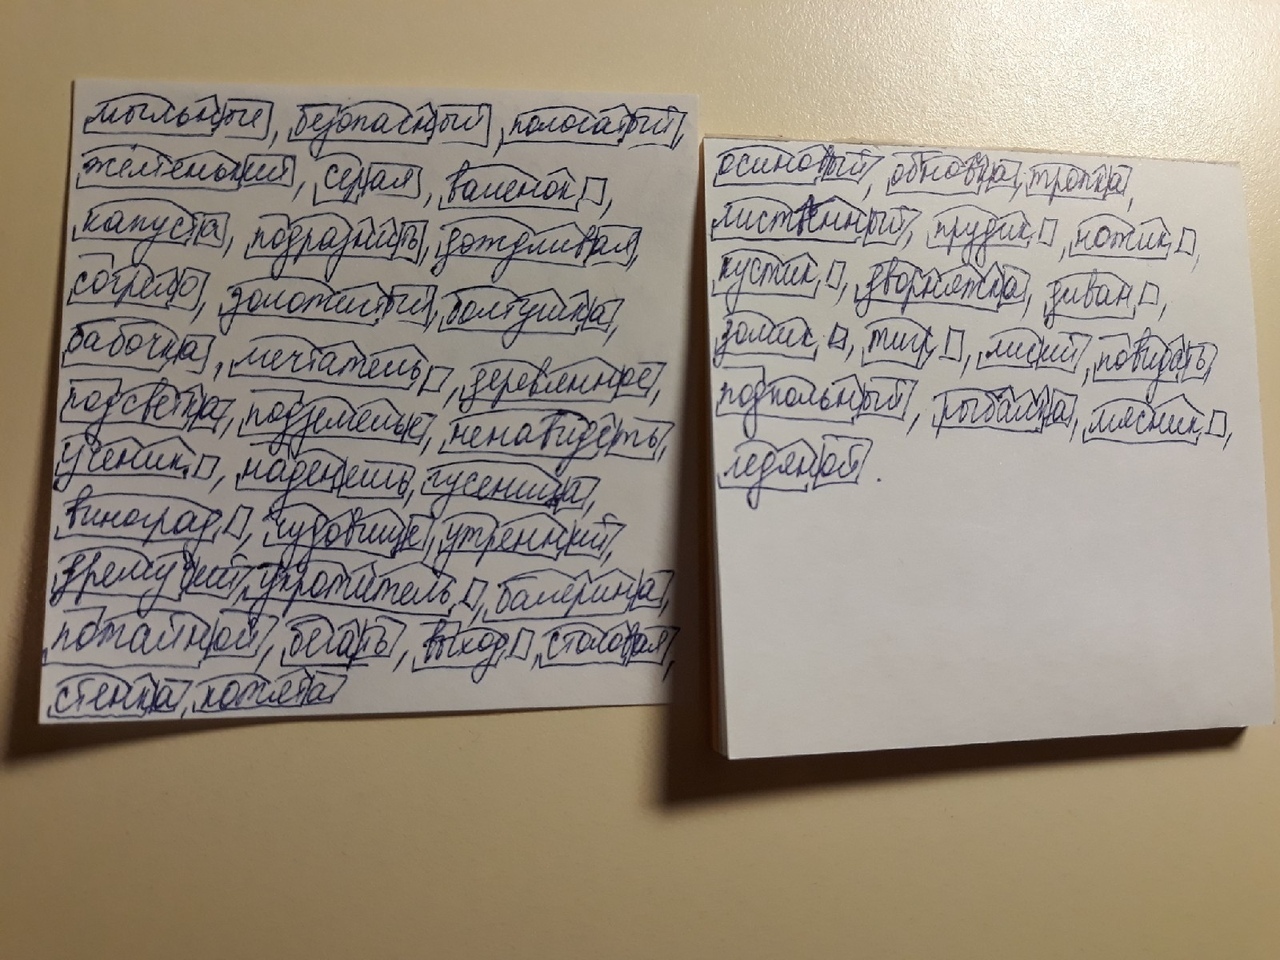 мыльные, безопасный, полосатый,
жёлтенький, серая, валенок,
капуста, подразнить, дождливая,
согрею, золотистый, болтушка,
бабочка, мечтатель, деревянное,
подсветка, подземелье, ненавидеть,
ученик, наденешь, гусеница,
виноград, чудовище, утренний,
дремучий, укротитель, балерина,
пожарной, бегать, выход, столовая,
стенка, котята
осиновый, обновка, тропка,
лиственный, прудик, ножик,
кустик, дворняжка, диван,
домик, тигр, лисий, повидать
подпольный, рыбалка, мясник,
ледяной.